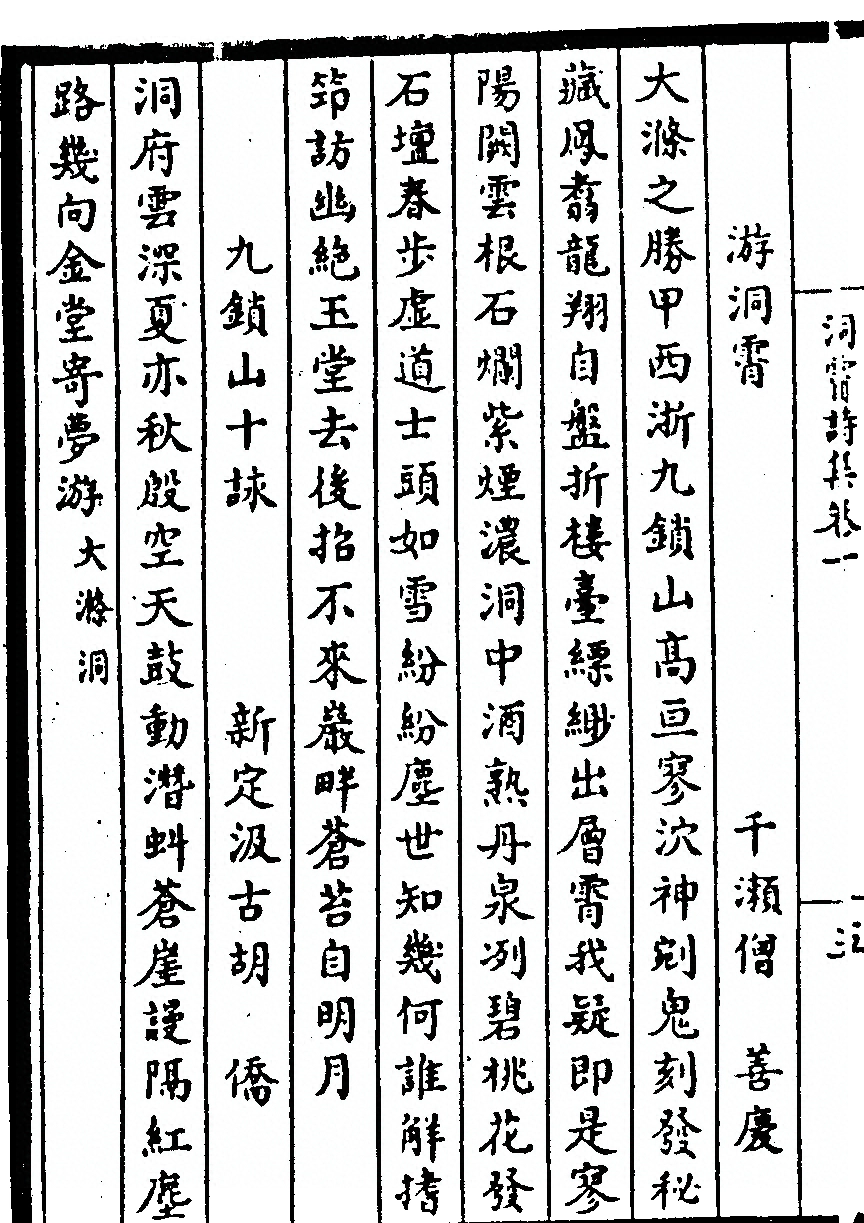 洞霄詩集卷一
三
游洞霄　千瀨僧　善慶
大滌之勝甲西浙九鎖山高亘寥泬神剜鬼刻發秘
藏鳳翥龍翔自盤折樓臺縹緲出層霄我疑即是寥
陽闕雲根石爛紫煙濃洞中酒熟丹泉冽碧桃花發
石壇春步虛道士頭如雪紛紛塵世知幾何誰解搘
筇訪幽絕玉堂去後招不來巖畔蒼苔自明月
九鎖山十詠　新定汲古胡　僑
洞府雲深夏亦秋殷空天鼓動潛虯蒼崖謾隔紅塵
路幾向金堂寄夢游大滌洞